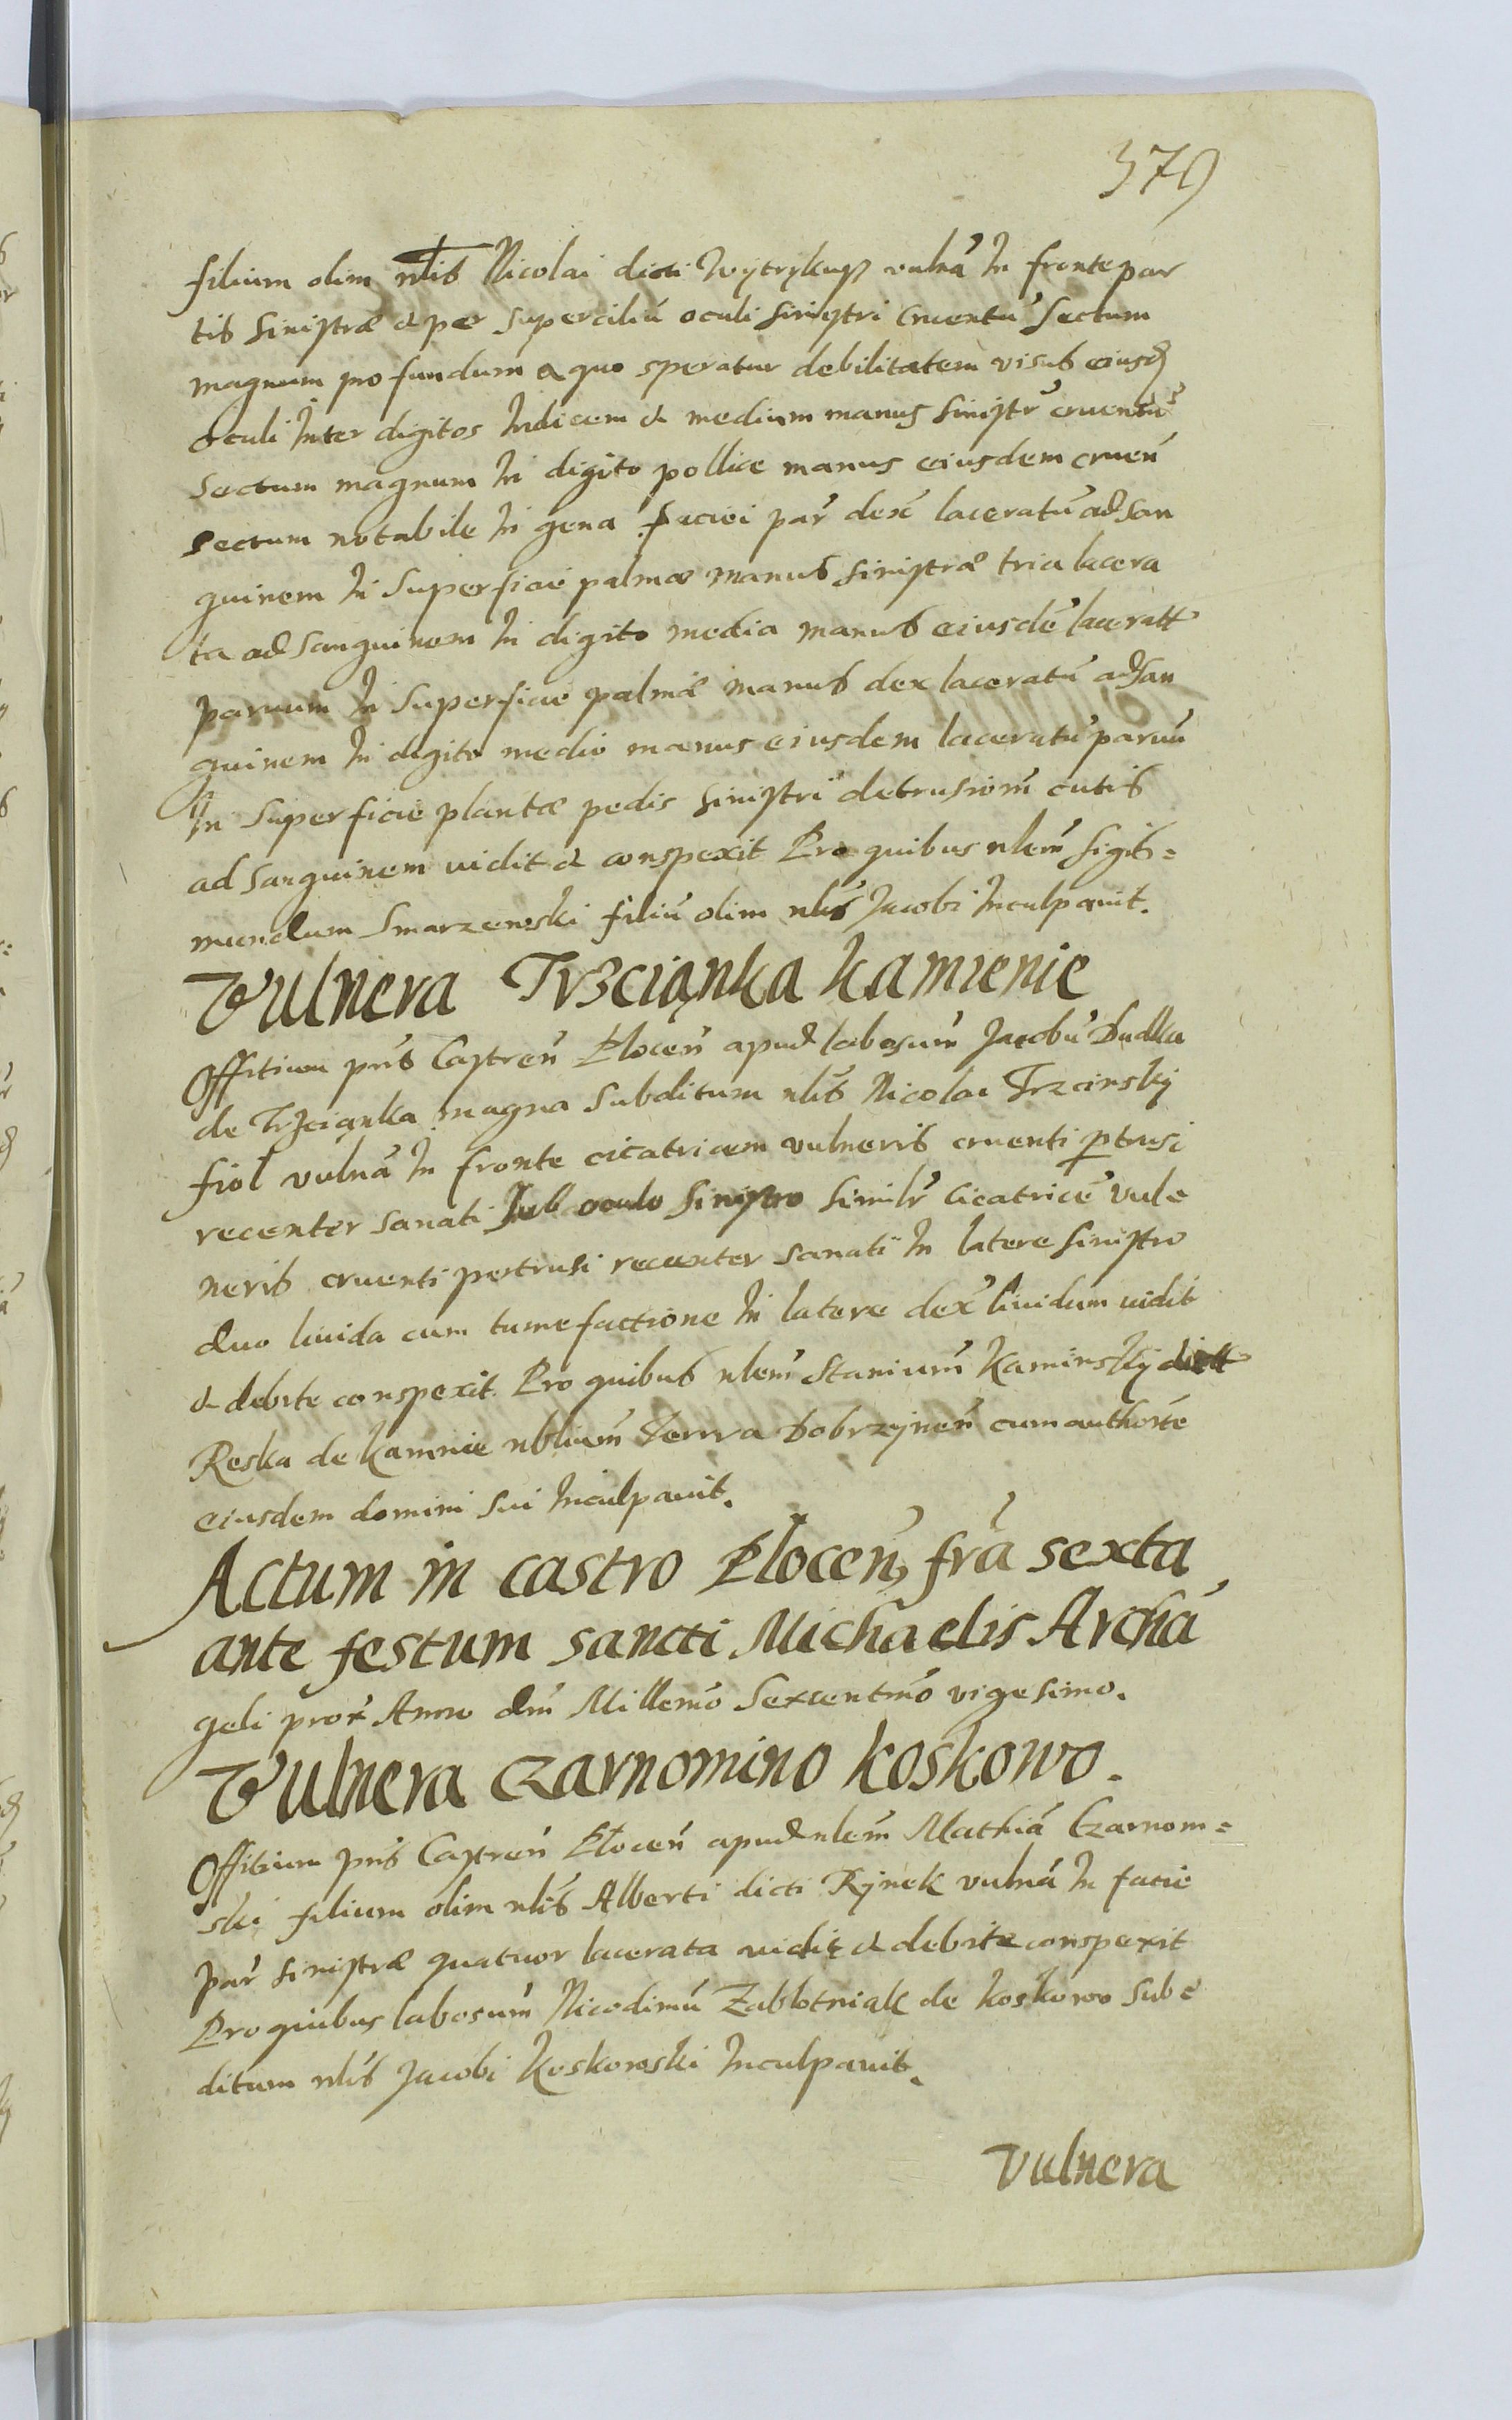 379
filium olim nłis Nicolai dicti Wytrykusz vulnā In fronte par
tis sinistræ & per superciliū oculi sinistri cruentū sectum
magnum profundum a quo speratur debilitatem visus eiusd
oculi Inter digitos Indicem & medium manus sinistr̄ cruentū
sectum magnum In digito pollice manus eiusdem cruen̄
sectum notabile In gena faciei par̄ dex̄ laceratū ad san
guinem In superficie palmæ manus sinistræ tria lacera
ta ad sanguinem In digito media manus eiusdē laceratt
paruum In superficie palmæ manus dex laceratū ad san
guinem In digito medio manus eiusdem laceratū paruū
In superficie plantæ pedis sinistri detrusionm̄ cutis
ad sanguinem vidit & conspexit Pro quibus nlem̄ Sigis=
mundum Smarzewski filiū olim nłis Jacobi Inculpauit.
Vulnera Trzcianka Kamienie
Offitium pn̄s Castren̄ Plocen̄ apud labosum̄ Jacobū Dudka
de Trzcianka magna subditum nłis Nicolai Trzcinsky
fiol vulnā In fronte cicatricem vulneris cruenti ptrusi
recenter sanati Sub oculo sinistro similr̄ cicatricē vule
neris cruenti pertrusi recenter sanati In latere sinistro
duo liuida cum tumefactione In latere dex̄ liuidum vidit
& debite conspexit Pro quibus nlem̄ Stanium̄ Kaminsky dictt
Reska de Kamnie nblium̄ Terra Dobrzynen̄ cum authorte
eiusdem domini sui Inculpauit.
Actum in castro Plocen̄, fr̄a sexta
ante festum sancti Michaelis Archā
geli prox̄ Anno dm̄ Millem̄o Sexcentmō vigesimo.
Vulnera Czarnomino Koskowo.
Offitium pn̄s Castren̄ Plocen̄ apud nlem̄ Mathiā Czarnom=
ski filium olim nłis Alberti dicti Rynek vulnā In facie
par̄ sinistræ quatuor lacerata vidit & debite conspexit
Pro quibus labosum̄ Nicodimū Zablotniak de Koskowo sube
ditum nłis Jacobi Koskowski Inculpauit.
Vulnera